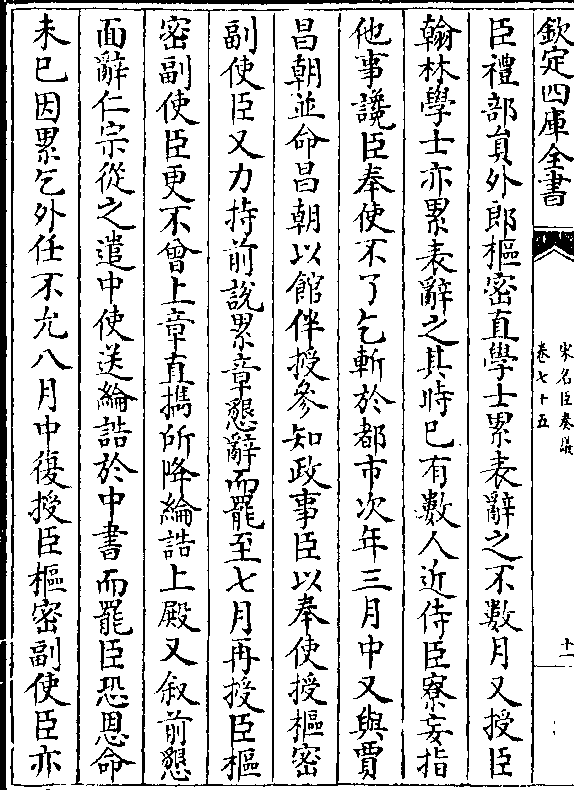 欽定四庫全書
宋名臣奏議
卷七十五
十一
臣禮部員外郎樞密直學士累表辭之不數月又授臣
翰林學士亦累表辭之其時已有數人近侍臣寮妄指
他事讒臣奉使不了乞斬於都市次年三月中又與賈
昌朝並命昌朝以館伴授參知政事臣以奉使授樞密
副使臣又力持前說累章懇辭而罷至七月再授臣樞
密副使臣更不曾上章直攜所降綸誥上殿又叙前懇
面辭仁宗從之遣中使送綸誥於中書而罷臣恐恩命
未已因累乞外任不允八月中復授臣樞密副使臣亦